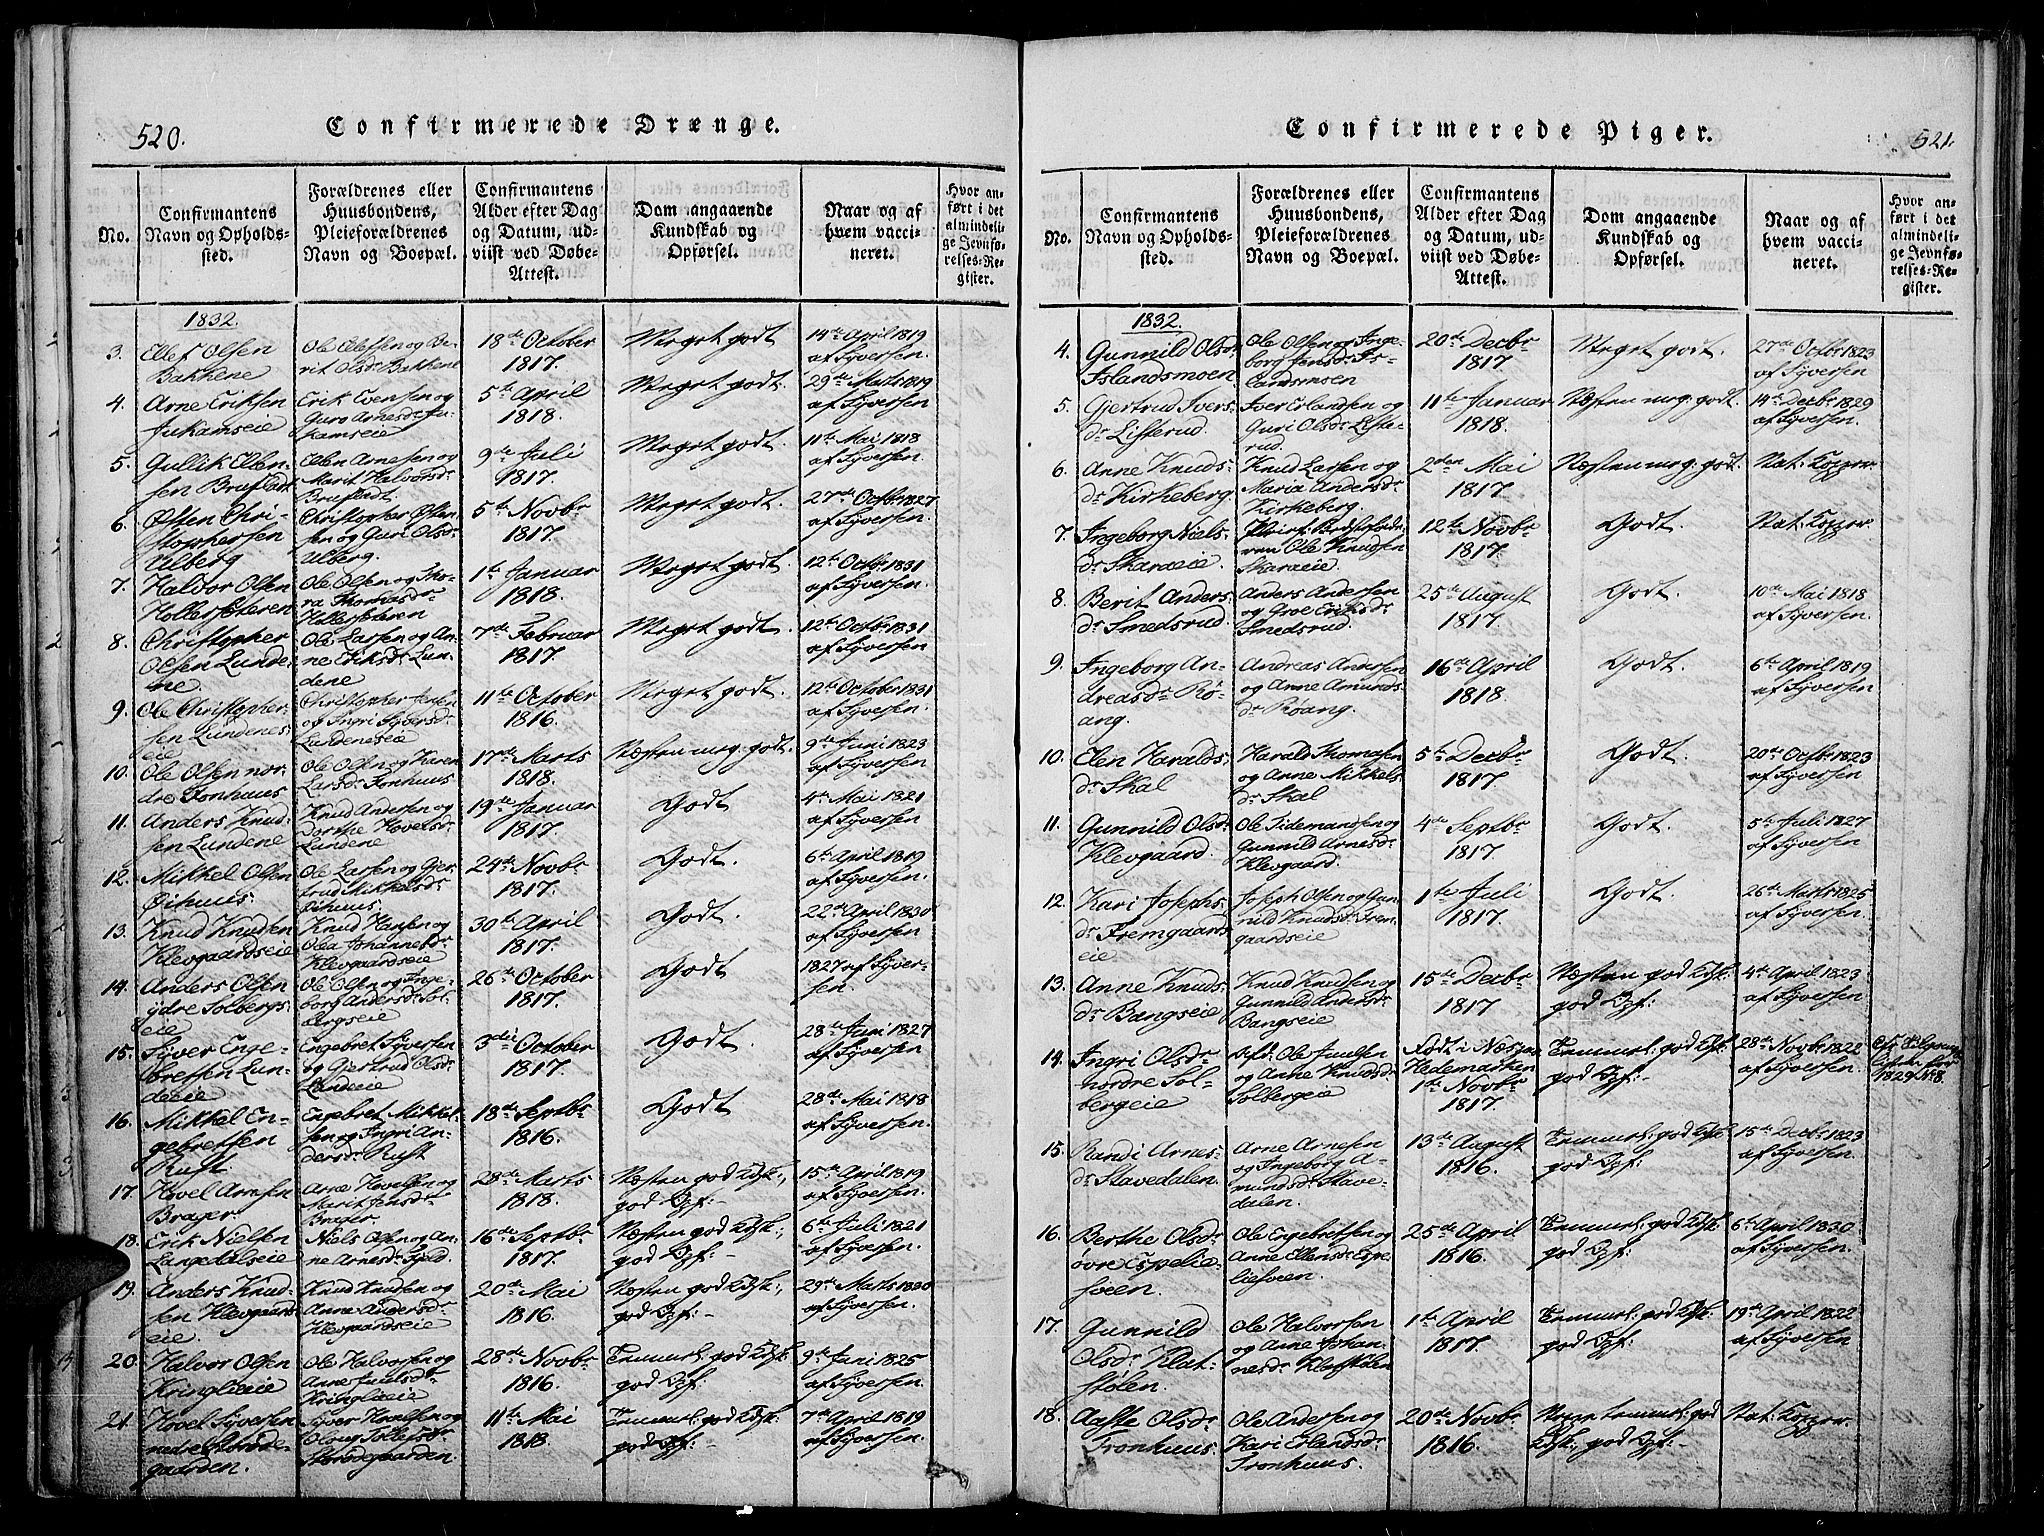 520.
Confirmerede Drænge.
No.
Confirmantens Navn og Opholdssted.
Forældrenes eller Huusbondens, Pleieforældrenes Navn og Boepæl.
Confirmantens Alder efter Dag og Datum, udviist ved Døbe-Attest.
Dom angaaende Kundskab og Opførsel.
Naar og af hvem vaccineret.
Hvor anført i det almindelige Jevnførelses-Register.
1832.
3. Ellef Olsen Bakkene Ole Ellefsen og Berit Olsdr Bakkene 18de October 1817. Meget godt 14de April 1819 af Syversen.
4. Arne Eriksen Jukamseie Erik Evensen og Guro Arnesdr Jukamseie 5te April 1818. Meget godt. 29de Marts 1819 af Syversen
5. Gullik Ellensen Bruflodt Elen Arnesen og Marit Halvorsdr Bruflodt. 9de Juli 1817. Meget godt. 11te Mai 1818 af Syversen.
6. Østen Christophersen Ulberg Christopher Østensen og Guri Olsdr Ulberg. 5te Novbr 1817. Meget godt. 27de Octbr 1827 af Syversen.
7. Halvor Olsen Hollerseteren Ole Olsen og Thora Thomasdr Hollerseteren 1te Januar 1818. Meget godt. 12te Octbr 1831 af Syversen.
8. Christopher Olsen Lundene. Ole Larsen og Anne Eriksdr Lundene 7de Februar 1817. Meget godt. 12te Octbr 1831 af Syversen
9. Ole Christophersen Lundeneseie Christopher Jensen og Ingri Syversdr Lundeneseie 11te October 1816. Meget godt. 12te October 1831 af Syversen.
10. Ole Olsen nordre Fonhuus Ole Olsen og Karen Larsdr Fonhuus 17de Marts 1818. Næsten meg: godt. 9de Juni 1823 af Syversen.
11. Anders Knudsen Lundene Knud Andersen og Dorthe Hovelsdr Lundene 19de Januar 1817. Godt 4de Mai 1821 af Syversen
12. Mikkel Olsen Øihuus. Ole Larsen og Gjertrud Mikkelsdr Øihuus. 24de Novbr 1817. Godt. 6te April 1819 af Syversen.
13. Knud Knudsen Klevgaardseie Knud Hansen og Olea Johannesdr Klevgaardseie 30te April 1817. Godt. 22de April 1830 af Syversen.
14. Anders Olsen ydre Solbergseie Ole Olsen og Ingeborg Andersdr Solbergseie 26de October 1817. Godt 1827 af Syversen.
15. Syver Engebretsen Lundeeie Engebret Syversen og Gjertrud Olsdr Lundeeie 3die October 1817. Godt. 28de Juni 1827 af Syversen
16. Mikkel Engebretsen Rust Engebret Mikkelsen og Ingri Andersdr Rust 18de Septbr 1816. Godt 28de Mai 1818 af Syversen.
17. Hovel Arnesen Brager. Arne Hovelsen og Marit Jensdr Brager. 28de Marts 1818. Næsten god Kdsk:, god Opf:- 15de April 1819 af Syversen.
18. Erik Nielsen Niels Olsen og Anne Arnesdr 16de Septbr 1817. Næsten god Kdsk:, god Opf:- 6te Juli 1821 af Syversen.
19. Anders Knudsen Klevgaardseie. Knud Knudsen og Anne Andersdr Klevgaardseie 20de Mai 1816. Næsten god Kdsk:, god Opf:- 29de Marts 1830 af Syversen.
20. Halvor Olsen Kringlaeie Ole Halvorsen og Anne Juulsdr Kringlaeie 28de Novbr 1816. Temmel: god Kdsk: god Opf: 9de Juni 1825 af Syversen.
21. Hovel Syversen nedre Storødegaarden. Syver Hovelsen og Oloug Tollefsdr Storødegaarden. 11te Mai 1818. Temmel: god Kdsk: god Opf:- 7de April 1819 af Syversen.
Confirmerede Piger.
521.
No.
Confirmantens Navn og Opholdssted.
Forældrenes eller Huusbondens, Pleieforældrenes Navn og Boepæl.
Confirmantens Alder efter Dag og Datum, udviist ved Døbe-Attest.
Dom angaaende Kundskab og Opførsel.
Naar og af hvem vaccineret.
Hvor anført i det almindelige Jevnførelses-Register.
1832.
4. Gunnild Olsdr Islandsmoen. Ole Olsen og Ingeborg Jensdr Islandsmoen 20de Decbr 1817 Meget godt. 27de Octbr 1823 af Syversen
5. Gjertrud Iversdr Listerud. Iver Erlandsen og Guri Olsdr Listerud. 11te Januar 1818. Næsten meg: godt. 14de Decbr 1829 af Syversen.
6. Anne Knudsdr Kirkeberg. Knud Larsen og Maria Andersdr Kirkeberg. 2den Mai 1817. Næsten meg: godt. Nat: Kopper.
7. Ingeborg Nielsdr Skaraeie. Ole Knudsen Skaraeie. 12te Novbr 1817. Godt. Nat: Kopper.
8. Berit Andersdr Smedsrud. Anders Andersen og Groe Eriksdr Smedsrud 25de August 1817. Godt. 10de Mai 1818 af Syversen.
9. Ingeborg Andreasdr Røang. Andreas Andersen og Anne Amundsdr Roang. 16de April 1818. Godt. 6te April 1819 af Syversen.
10. Elen Haraldsdr Skal Harald Thomasen og Anne Mikkelsdr Skal 5te Decbr 1817. Godt. 20de Octbr 1823 af Syversen
11. Gunnild Olsdr Klevgaard. Ole Tidemandsen og Gunnild Arnesdr Klevgaard. 4de Septbr 1817. Godt. 5te Juli 1827 af Syversen.
12. Kari Josephsdr Fremgaardseie Joseph Olsen og Gunnild Knudsdr Fremgaardseie 1te Juli 1817. Godt. 26de Marts 1825 af Syversen.
13. Anne Knudsdr Bangseie Knud Knudsen og Gunnild Andersdr Bangseie 15de Decbr 1817 Næsten god Kdsk: god Opf: 4de April 1823 af Syversen.
14. Ingri Olsdr nordre Solbergeie Afd. Ole Juulsen og Anne Knudsdr Solbergeie Født i Næs paa Hedemarken 1te Novbr 1817. Temmel: god Kdsk: god Opf:- 28de Novbr 1822 af Syversen. 1829 No 8.
15. Randi Arnesdr Stavedalen. Arne Arnesen og Ingeborg Amundsdr Stavedalen. 13de August 1816. Temmel: god Kdsk: god Opf: 15de Decbr 1823 af Syversen.
16. Berthe Olsdr øvre Espeliesveen. Ole Engebretsen og Anne Ellensdr Espeliesveen. 25de April 1816. Temmel: god Kdsk: god Opf: 6te April 1830 af Syversen.
17. Gunnild Olsdr Klatstølen. Ole Halvorsen og Anne Johannesdr 1te April 1817. Temmel: god Kdsk: god Opf: 19de April 1822 af Syversen.
18. Aaste Olsdr Tronhuus. Ole Andersen og Kari Erlandsdr Tronhuus. 20de Novbr 1816. temmel: god Kdsk:, god Opf:- Nat: Kopper.